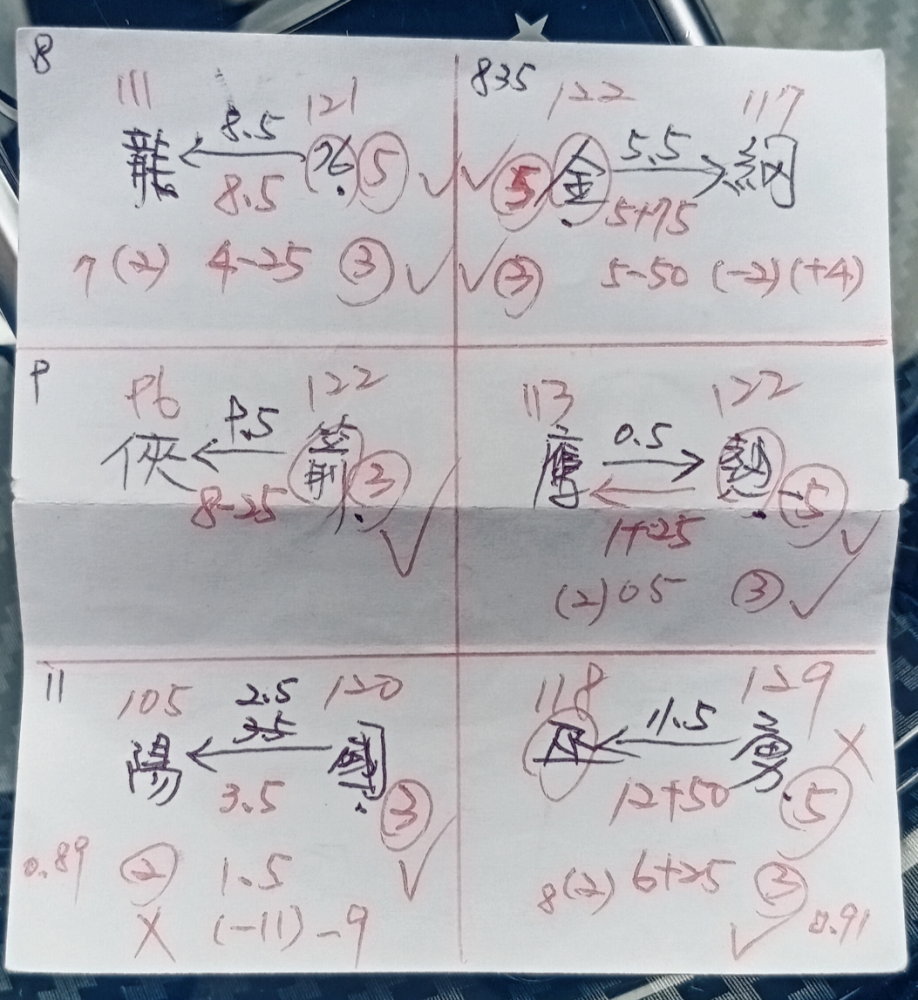 8
111 8.5 121
龍 ← 5
8.5
7 (2) 4-25 3
835
122 117
5 金 5.5 → 網
5+75
3 5-50 (-2) (+4)
P
96 122
俠 ← P.5 3
8-25
113 122
鷹 0.5 → 熱 5
←
1+25
(2) 05 3
11
105 2.5 120
陽 ← 3.5 國
3.5 3
0.89 2 1.5
X (-11) -9
118 129
← 11.5 勇 X
12+50 5
8(2) 6+25 3
0.91